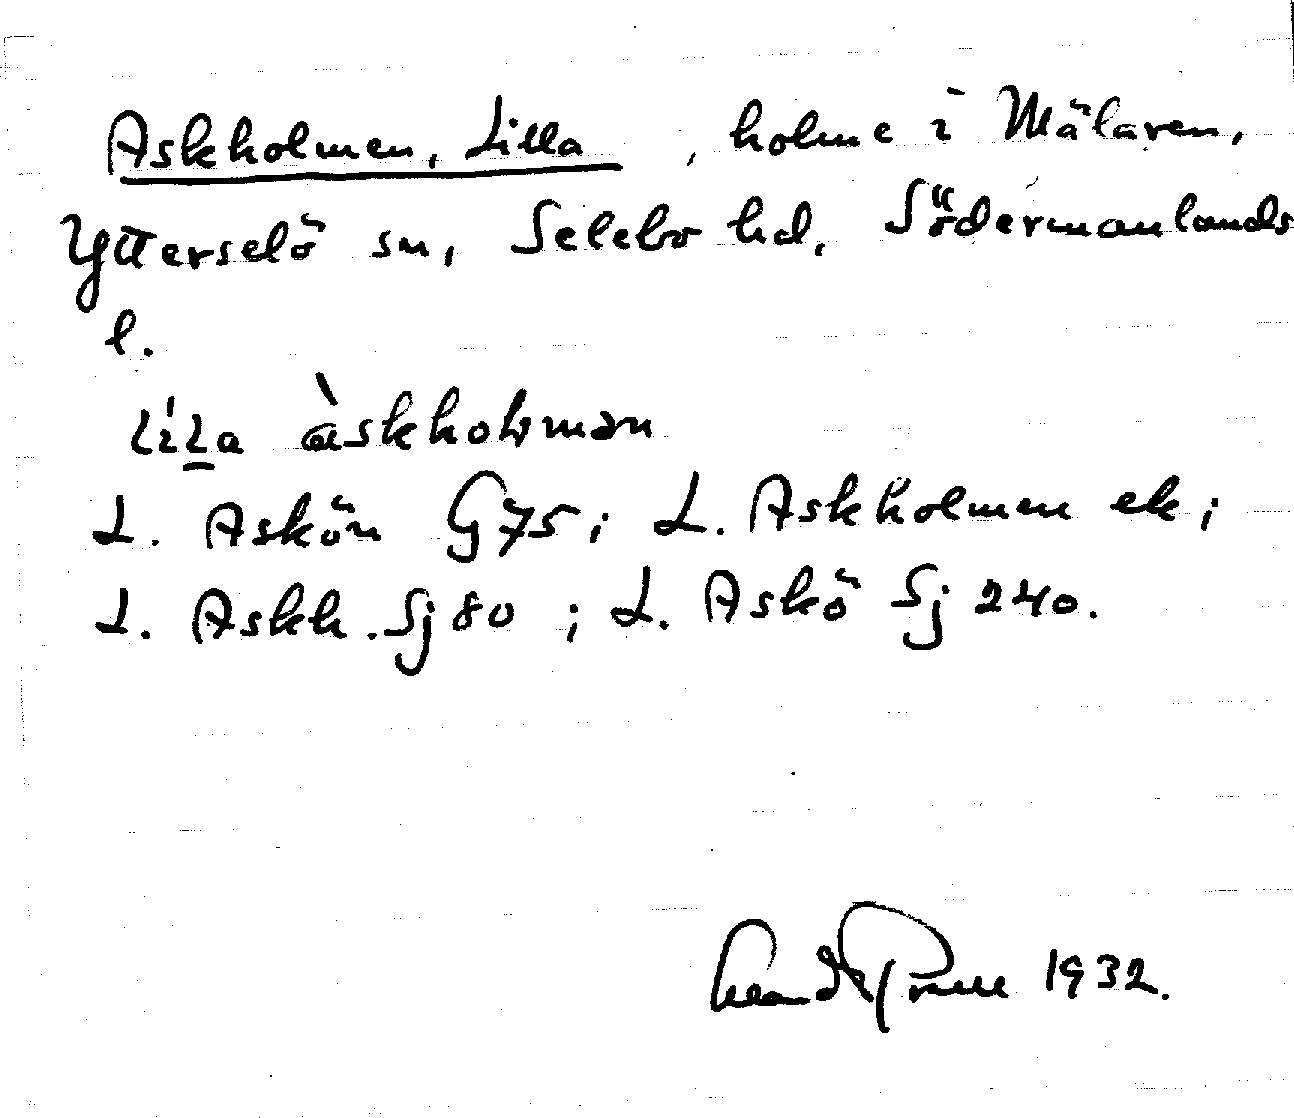 Askholmen, Lilla, holme i Mälaren,
Ytterselö sn, Selebo hd, Södermanlands
l.
líla àskholmən
L. Askön G75; L. Askholmen ek;
L. Askh. Sj 80; L. Askö Sj 240.
1932.